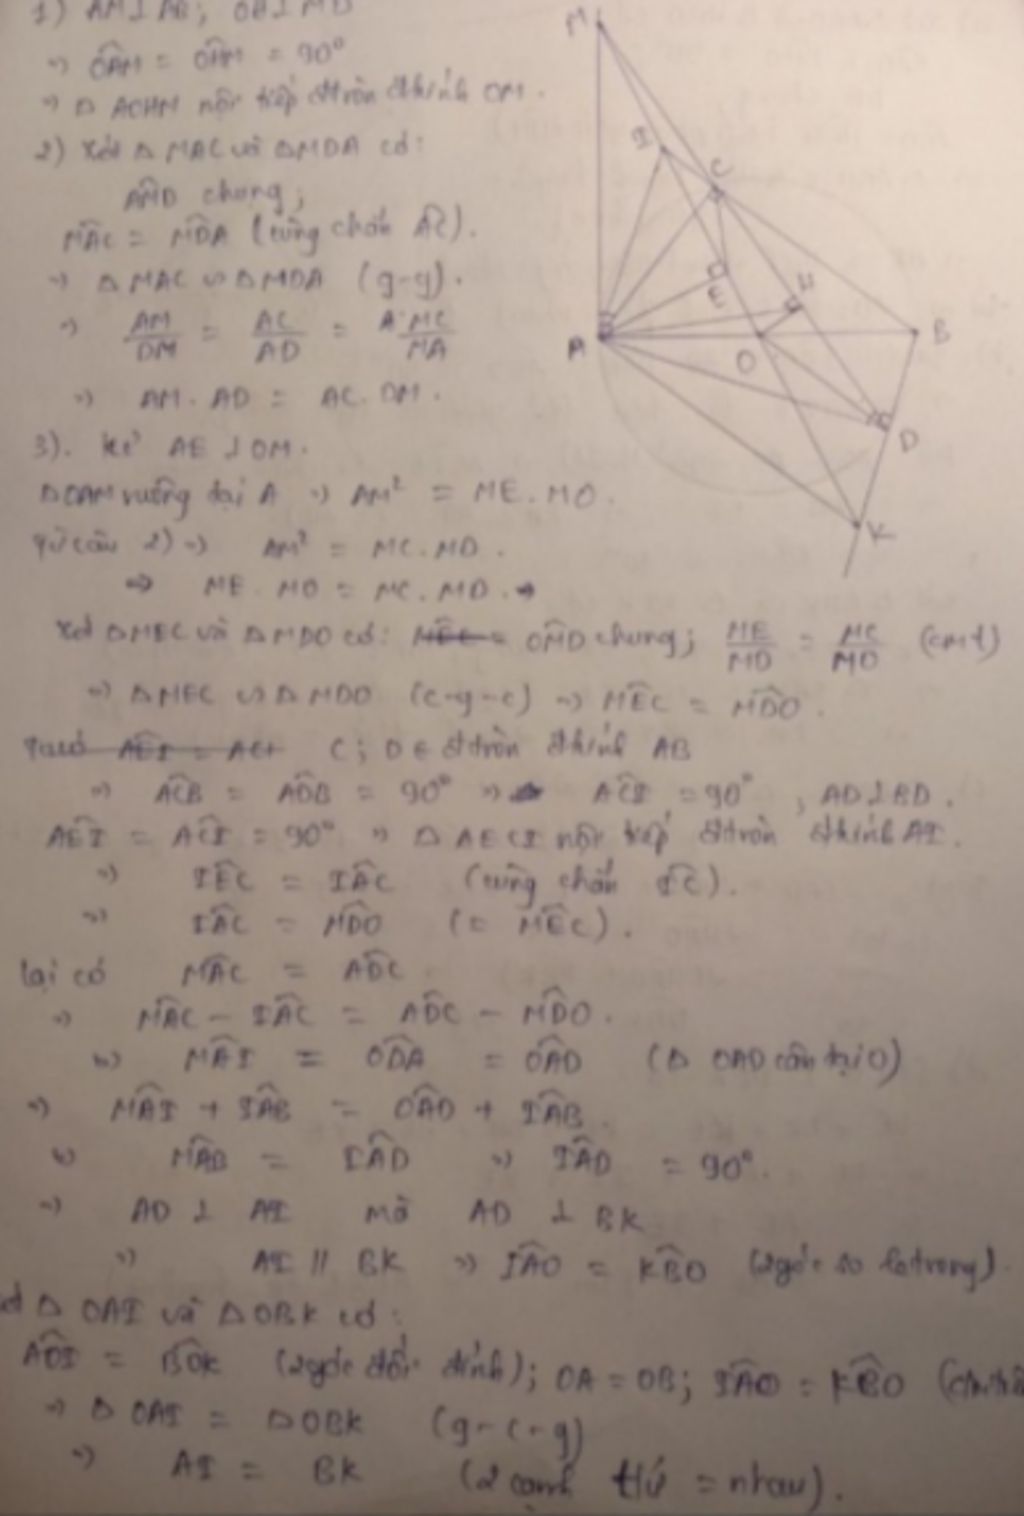 1) AM ⊥ AB; OH ⊥ MD
=> OÂM = OĤM = 90°
=> ▵ AOHM nội tiếp đtròn đkính OM.
2) Xét △ MAC và △MDA có:
AM̂D chung;
MÂC = MD̂A (cùng chắn AC).
=> △ MAC ∽ △MDA (g-g).
=> AM/DM = AC/AD = MC/MA
=> AM. AD = AC. DM.
3). Kẻ AE ⊥ OM.
△OAM vuông tại A => AM² = ME. MO.
Từ câu 2) => AM² = MC. MD.
=> ME. MO = MC. MD. =>
Xét △MEC và △MDO có: OM̂D chung; ME/MD = MC/MO (cmt)
=> △MEC ∽ △ MDO (c-g-c) => MÊC = MD̂O.
C; D ∈ đtròn đkính AB
=> AĈB = AD̂B = 90° => AĈI = 90°, AD ⊥ BD.
AÊI = AĈI = 90° => ▵ AECI nội tiếp đtròn đkính AI.
=> IÊC = IÂC (cùng chắn IC).
=> IÂC = MD̂O (= MÊC).
lại có MÂC = AD̂C
=> MÂC - IÂC = AD̂C - MD̂O.
=> MÂI = OD̂A = OÂD (△ OAD cân tại O)
=> MÂI + IÂB = OÂD + IÂB.
=> MÂB = IÂD => IÂD = 90°.
=> AD ⊥ AI mà AD ⊥ BK
=> AI // BK => IÂO = KB̂O (2 góc so le trong).
△ OAI và △OBK có:
AÔI = BÔK (2 góc đối đỉnh); OA = OB; IÂO = KB̂O
=> △ OAI = △OBK (g-c-g)
=> AI = BK (2 cạnh tứ = nhau).
M
I
C
H
E
A
O
B
D
K